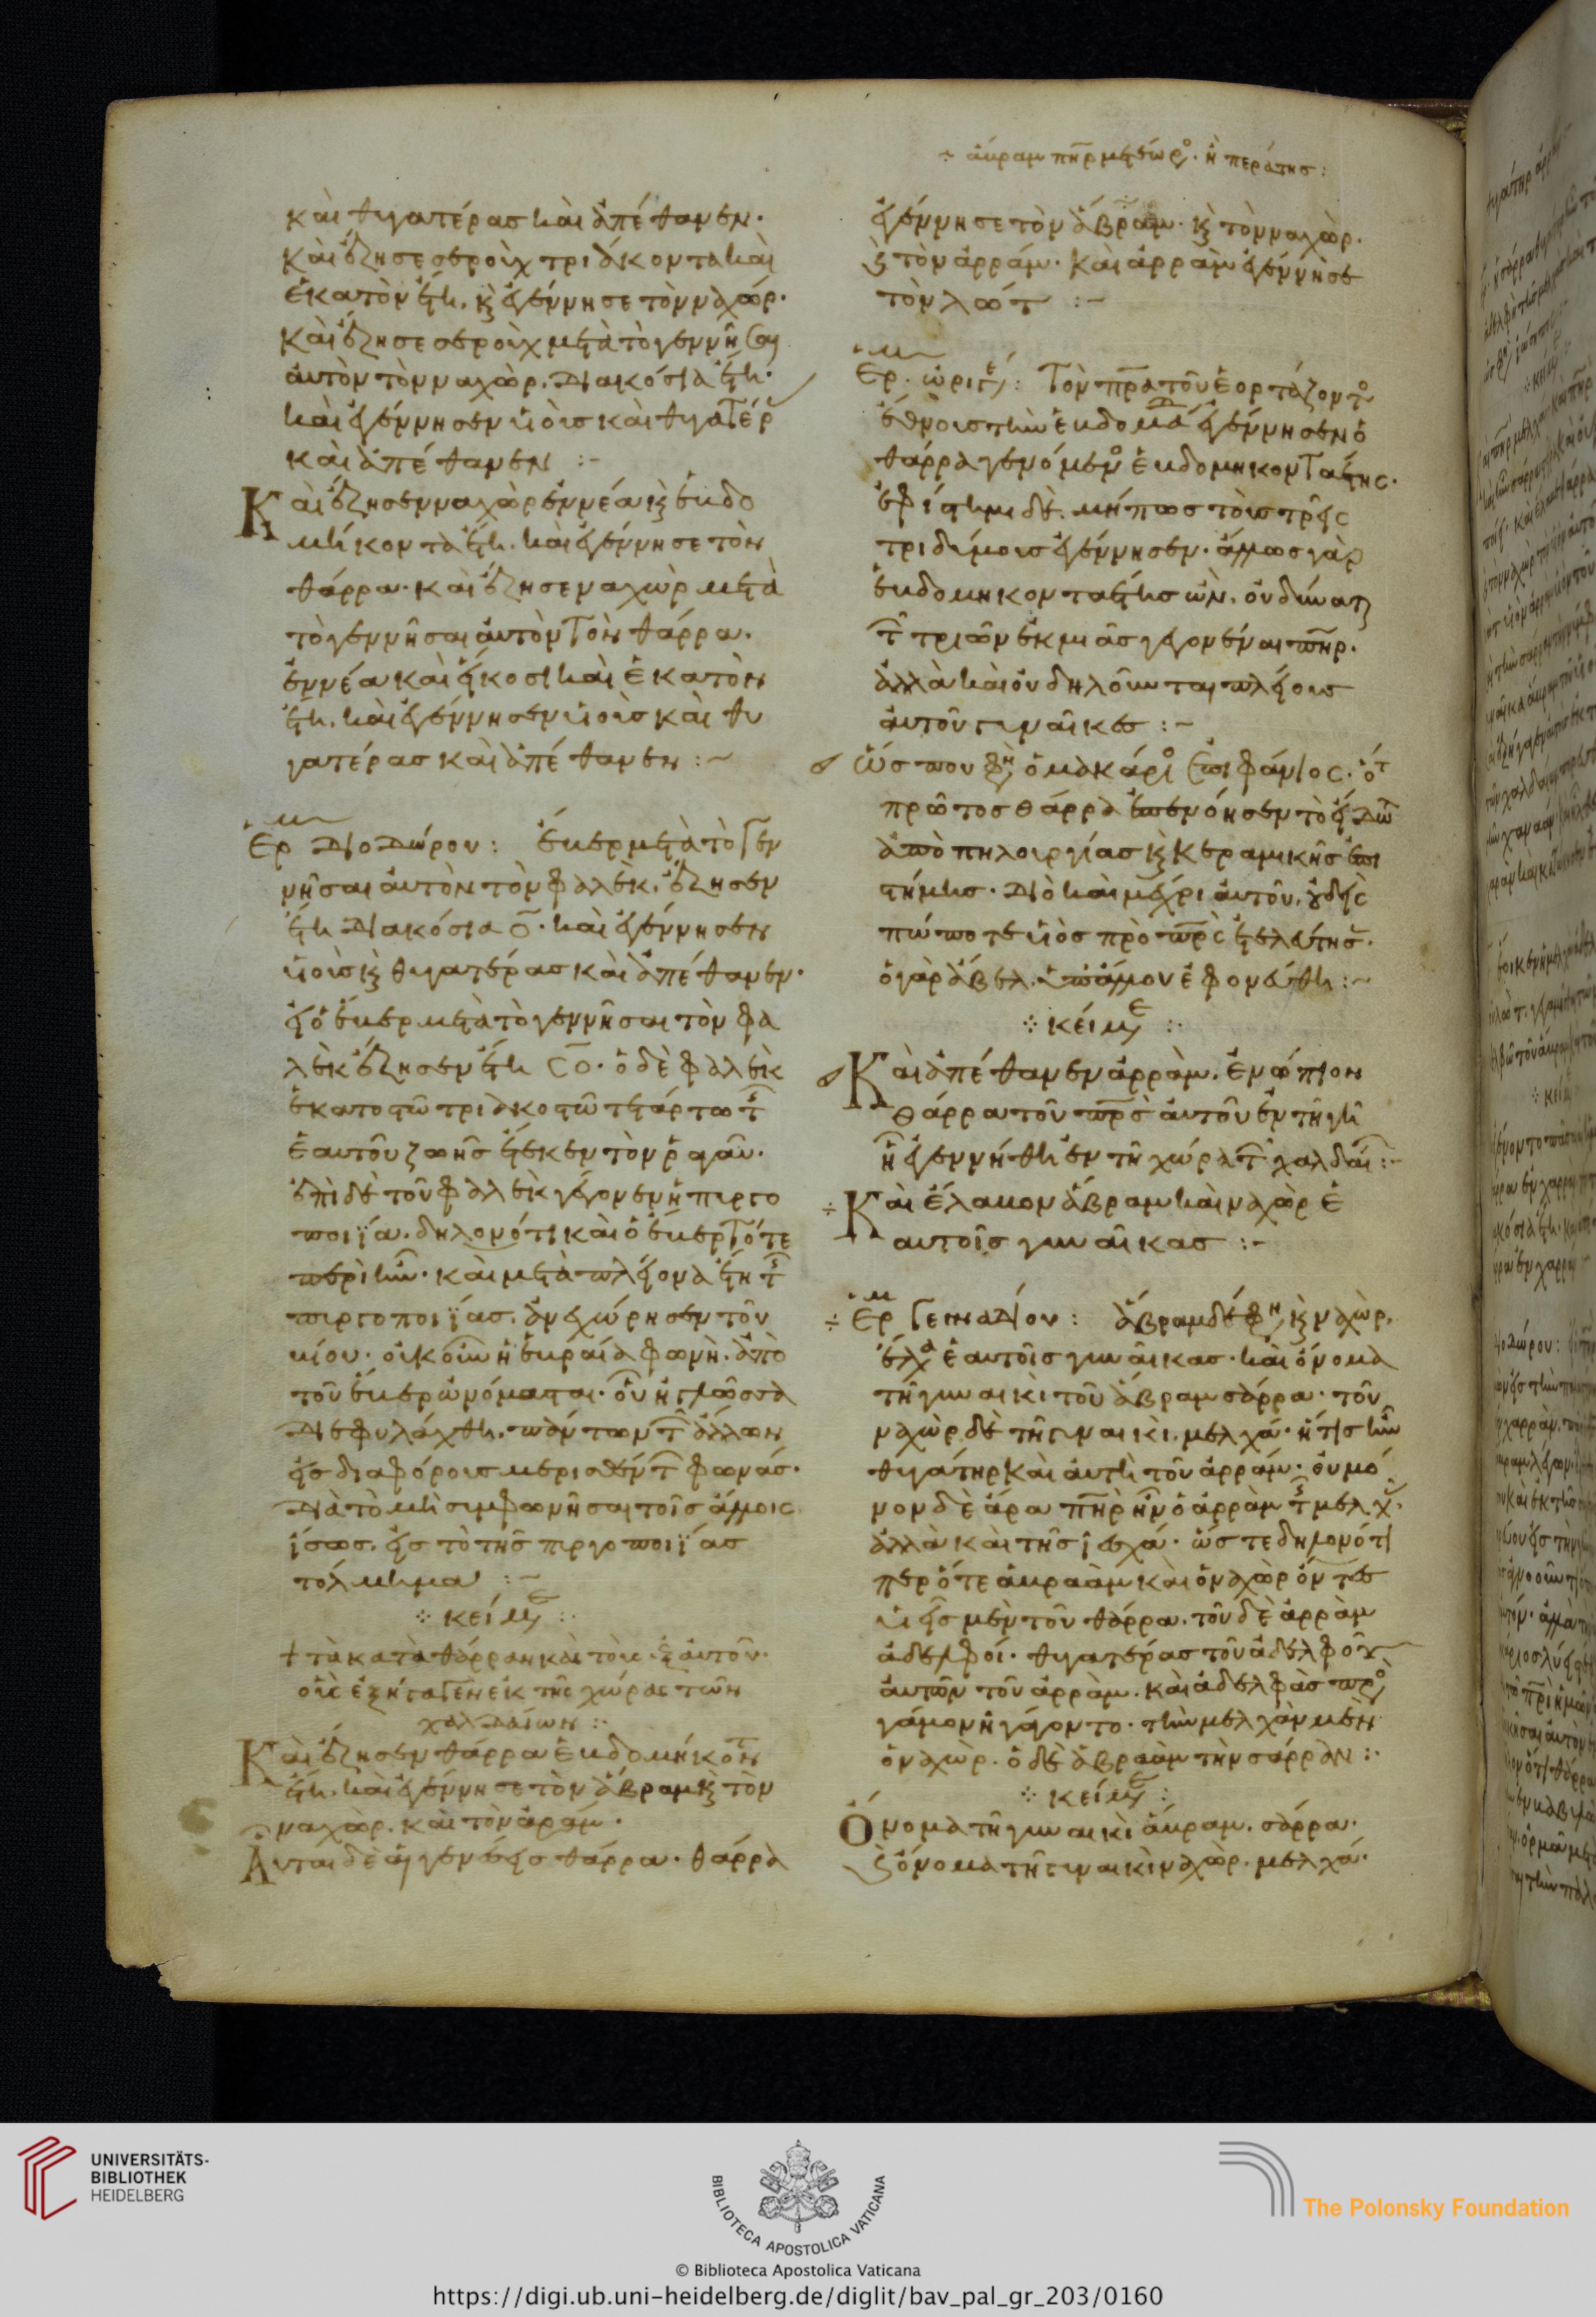 ÷ ἄβραμ πηρ μετέωρο. ἢ περάτησ:
και θυγατέρασ και ἀπέθανεν.
και ἔζησε σεροὺχ τριάκοντα και
ἑκατὸν ἔτη. κ ἐγέννησε τὸν ναχώρ.
και ἔζησε σεροὺχ μετὰ τὸ γεννῆσαι
ἀυτὸν τὸν ναχὼρ. διακόσια ἔτη.
και ἐγέννησεν ὑιὸυσ και θυγατέρ
και ἀπέθανεν :~
Και ἔζησεν ναχὼρ ἐννέα κ ἑβδο
μήκοντα ἔτη. και ἐγέννησε τὸν
θάρρα. και ἔζησε ναχὼρ μετὰ
τὸ γεννῆσαι ἀυτὸν τὸν θάρρα.
ἐννέα και ἔικοσι και ἑκατὸν
ἔτη. και ἐγέννησεν ὑιοὺσ και θυ
γατέρασ και ἀπέθανεν :~
Ἑρμ Διοδώρου: ἔβερ μετὰ τὸ γεν
νῆσαι ἀυτὸν τὸν φαλὲκ. ἔζησεν
ἔτη διακόσια ο. και ἐγέννησεν
ὑιοὺσ κ θυγατέρασ και ἀπέθανεν.
εἰ ὁ ἔβερ μετὰ τὸ γεννῆσαι τὸν φα
λὲκ ἔζησεν ἔτη σο. ὁ δὲ φαλὲκ
ἑκατοστῶ τριακοστῶ τετάρτω τ
ἑαυτοῦ ζωῆσ ἔτεκεν τὸν ῥαγαῦ.
ἐπὶ δὲ τοῦ φαλὲκ γέγονεν ἡ πυργο
ποιΐα. δηλονότι και ὁ ἔβερ τότε
περιῆν. και μετὰ πλείονα ἔτη τ
πυργοποιΐασ. ἀνεχώρησεν τοῦ
βίου. οἰκοῦν ἡ ἑβραία φωνὴ. ἀπὸ
τοῦ ἔβερ ὠνόμασται. οὗ ἡ γλῶσσα
διεφυλάχθη. πάντων τ ἄλλων
εἰσ διαφόρουσ μερισθέντ φωνάσ.
διὰ τὸ μὴ συμφωνῆσαι τοῖσ ἄλλοις
ἴσωσ. εἰσ τὸ τῆσ πυργοποιΐασ
τόλμημα :~
÷ κείμε :·
+ τὰ κατὰ θάρραν και τοὺσ ἐξ ἀυτοῦ.
οὓσ ἐξήγαγεν ἐκ τῆς χώρας τῶν
χαλδαίων :·
Και ἔζησεν θάρρα ἑβδομήκοντ
ἔτη. και ἐγέννησε τὸν ἄβραμ κ τὸν
ναχὼρ. και τὸν ἀράμ.
Αὗται δὲ αἱ γενέσεισ θάρρα. θάρρα
ἐγέννησε τὸν ἄβραμ. κ τὸν ναχὼρ.
κ τὸν ἀρράμ. και ἀρρὰμ ἐγέννησε
τὸν λώτ :~
Ἑρμ. ὠριγέ: Τὸν πρα τοῦ ἑορτάζοντο
ἔθνουσ τὴν ἑβδομάδ ἐγέννησεν ὁ
θάρρα γενόμενο ἑβδομηκονταέτης.
ἐφίστημι δὲ. μήπωσ τοὺσ τρεῖς
τριδύμουσ ἐγέννησεν. ἄλλωσ γὰρ
ἑβδομηκονταέτησ ὢν. οὐ δύναται
τ τριῶν ἐκ μιᾶσ γεγονέναι πηρ.
ἀλλὰ και οὐ δηλοῦνται πλείουσ
ἀυτοῦ γυναῖκεσ :~
ὥσ που φη ὁ μακάριο ἐπιφάνιος. ὅτ
πρῶτοσ θάρρα ἐπενόησεν τὸ εἴδω
ἀπὸ πηλουργίασ κ κεραμικῆσ ἐπι
στήμησ. διὸ και μέχρι ἀυτοῦ. οὐδεὶς
πώποτε ὑιὸσ πρὸ πρς ἐτελεύτησ.
ὁ γὰρ ἄβελ. ὑπ' ἄλλου ἐφονεύθη :~
÷ κείμε :·
Και ἀπέθανεν ἀρρὰμ. ἐνώπιον
θάρρα τοῦ πρσ ἀυτοῦ ἐν τῆ γῆ
ἧ ἐγεννήθη ἐν τῆ χώρα τ χαλδαί :~
÷ Και ἔλαβον ἄβραμ και ναχὼρ ἑ
αυτοῖσ γυναῖκασ :~
÷ Ἑρμ Γενναδίου: ἄβραμ δέ φη κ ναχὼρ.
ἔλα ἑαυτοῖσ γυναῖκασ. και ὄνομα
τῆ γυναικὶ τοῦ ἄβραμ σάρρα. τοῦ
ναχὼρ δὲ τῆ γυναικὶ. μελχά. ἥτισ ἦν
θυγάτηρ και ἀυτὴ τοῦ ἀρράμ. οὐ μό
νον δὲ ἄρα πηρ ἦν ὁ ἀρρὰμ τ μελχ.
ἀλλὰ και τῆσ ἰεσχά. ὥστε δηλονότι
περ ὅτε ἀβραὰμ και ὁ ναχὼρ ὄντεσ
ὑιεῖσ μὲν τοῦ θάρρα. τοῦ δὲ ἀρρὰμ
ἀδελφοί. θυγατέρασ τοῦ ἀδελφοῦ
ἀυτῶν τοῦ ἀρρὰμ. και ἀδελφὰσ προ
γάμον ἠγάγοντο. τὴν μελχὰν μὲν
ὁ ναχὼρ. ὁ δὲ ἀβραὰμ τὴν σάρραν :·
÷ κείμε :
Ὄνομα τῆ γυναικὶ ἄβραμ. σάρρα.
κ ὄνομα τῆ γυναικὶ ναχὼρ. μελχά.
UNIVERSITÄTS-
BIBLIOTHEK
HEIDELBERG
BIBLIOTECA APOSTOLICA VATICANA
The Polonsky Foundation
© Biblioteca Apostolica Vaticana
https://digi.ub.uni-heidelberg.de/diglit/bav_pal_gr_203/0160